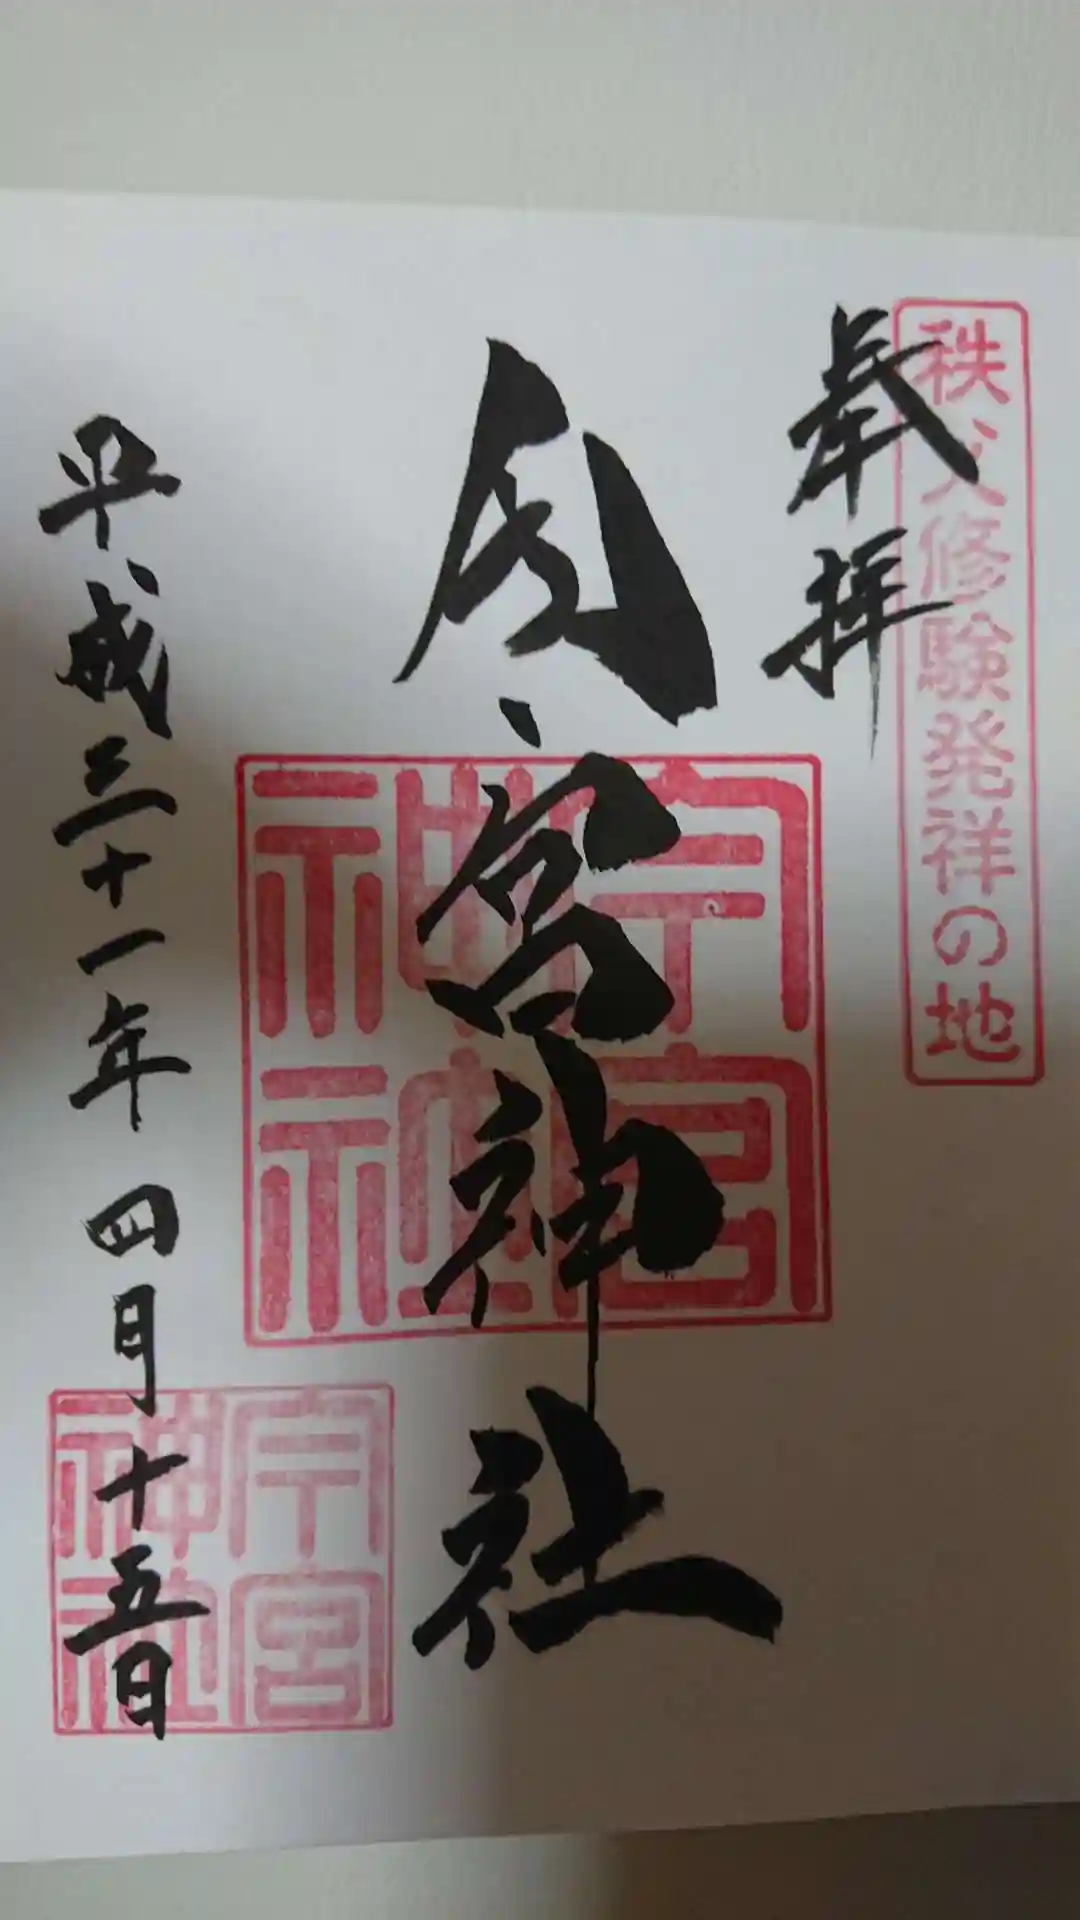 秩父修験発祥の地
奉拝
今宮神社
今宮
神社
平成三十一年四月十五日
今宮
神社